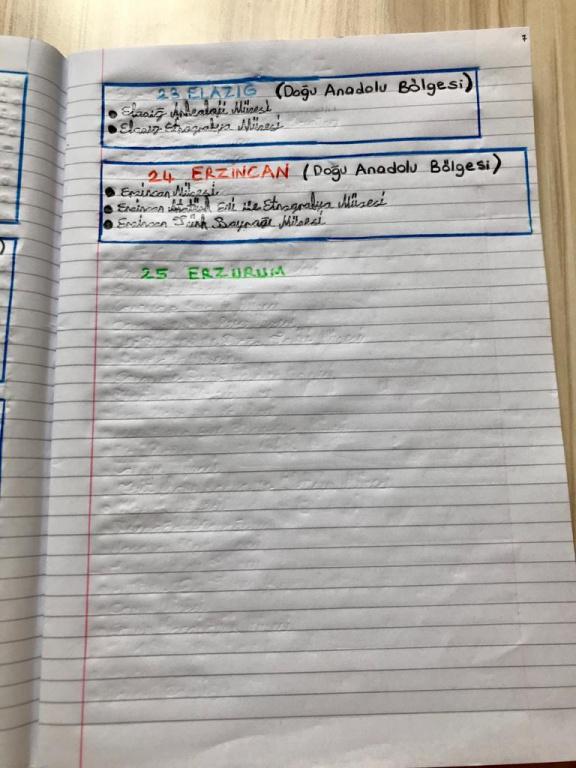 7
23 ELAZIĞ (Doğu Anadolu Bölgesi)
Elazığ Arkeoloji Müzesi
Elazığ Etnografya Müzesi
24 ERZİNCAN (Doğu Anadolu Bölgesi)
Erzincan Müzesi
Erzincan Atatürk Evi ile Etnografya Müzesi
Erzincan Türk Bayrağı Müzesi
25 ERZURUM